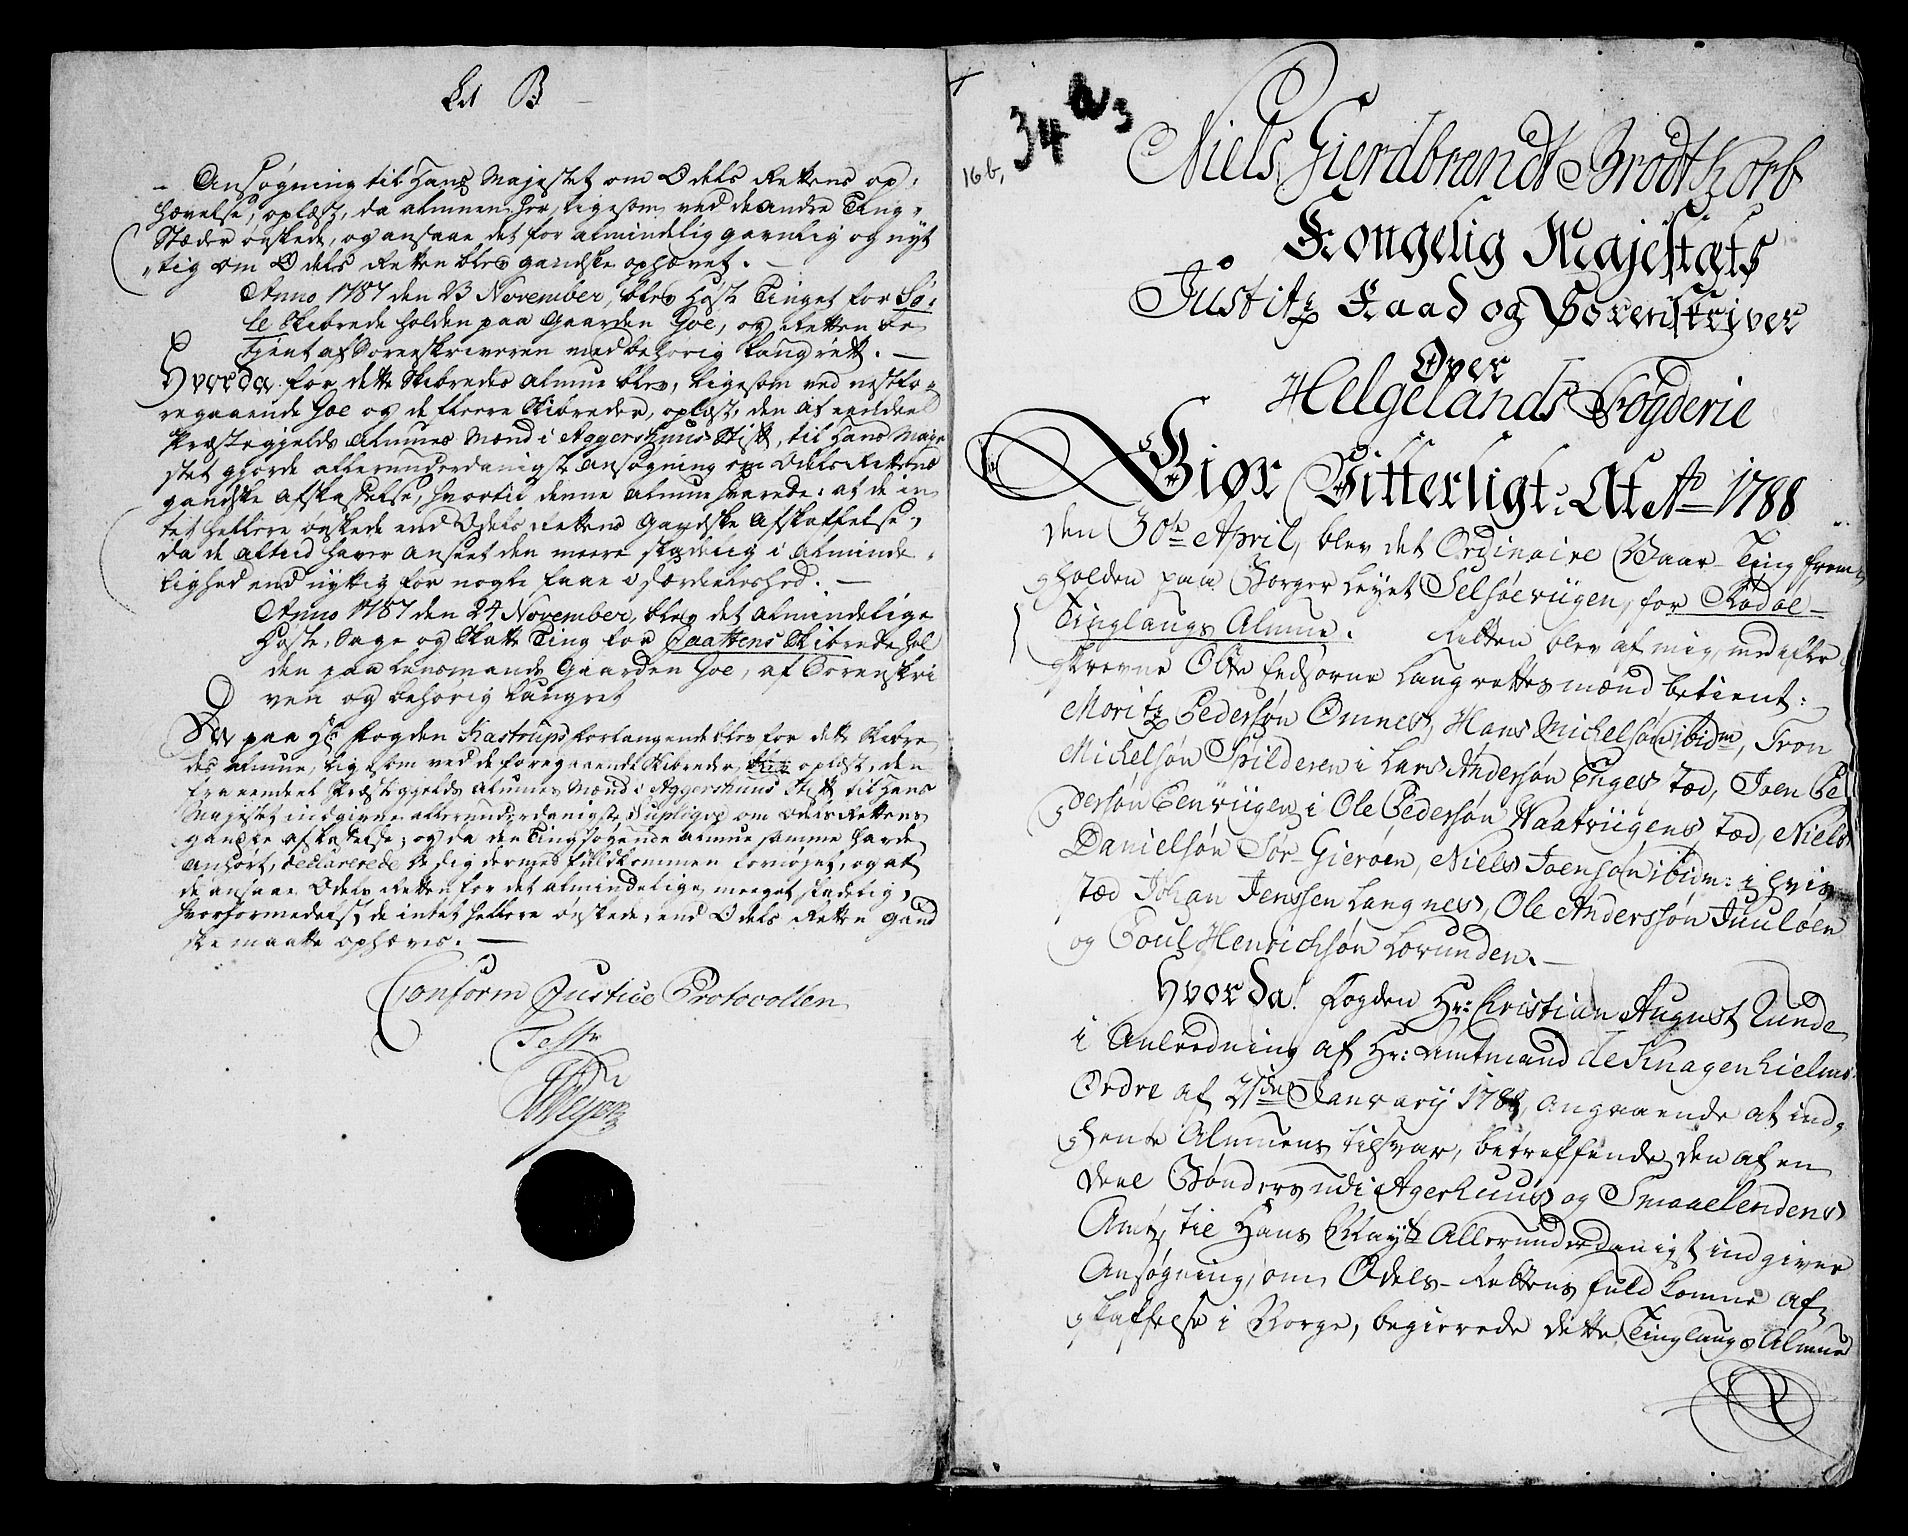 Lit B
Ansøgning til Hans Majestet om Odels Rettens op,
hævelse, oplæst, da almuen her, ligesom ved de andre Ting,,
Stæder ønskede, og ansaae det for almindelig gavnlig og nyt
,,tig om Odels Retten blev gandske ophævet. —
Anno 1787 den 23 November, blev Høst Tinget for Sø,
le Skibrede holden paa Gaarden Goe, og Retten be
tient af Sorenskriveren med behørig Laugrett. —
Hvorda for dette Skibredes almue blev, ligesom ved nestfo,,
regaaende Goe og de fleere Skibreder, oplæst, den af eendeel
Præstegjelds Almues Mænd i Aggershuus Stift, til Hans Maje
stet gjorde allerunderdanigste ansøgning om Odels Rettens
gandske Afskaffelse, hvortil denne Almue svarede: at de in
tet hellere ønskede end Odels Rettens Gandske Afskaffelse,
da de altiid haver anseet den meere skadelig i Alminde,
lighed end nyttig for nogle faae i særdeleshed. —
Anno 1787 den 24 November, blev det almindelige
Høste, Sage og Skatte Ting for Haattens Skibrede hol
den paa Lensmands Gaarden Goe, af Sorenskri
ven og behørig Laugret
Da paa Hr. Fogden Kastrups forlangende blev for dette Skibre
des almue, ligesom ved de foregaaende Skibreder, oplæst, den
fra eendeel Præstegields Almues Mænd i Aggershuus Stift til Hans
Majestet indgivne allerunderdanigste Suplique om Odels Rettens
gandske afskaffelse; og da den Tingsøgende Almue samme havde
anhørt, declarerede de sig dermed fuldkommen fornøyet, og at
de ansaae Odels Retten for det almindelige meeget skadelig,
hvorformedelst de intet hellere ønskede, end Odels Retten gand
ske maatte ophæves. —
Conform Justice Protocollen
Test
34 a 3
16 b,
Niels Gierdbrandt Brodtkorb
Kongelig Majestæts
Justitz Raad og Sorenskriver
Over
Helgelands Fogderie
Giør Vitterligt: At Ao 1788
den 30te April, blev det Ordinaire Vaar-Ting frem
holden paa Borger Leyet Selsøeviigen, for Rødøe-
Tinglaugs Almue. Retten blev af mig, med efter
skrevne Otte Eedsorne Laugrettesmænd betient:
Moritz Pedersøn Omnes, Hans Michelsøn ibidm, Tron
Michelsøn Spilderen i Lars Andersøn Enges stæd, Joen Pe
dersøn Eenviigen i Ole Pedersøn Vaatviigens stæd, Niels
Danielsøn Sør-Gierøen, Niels Joensøn ibidm: i hvis
stæd Johan Jenssen Langnes, Ole Anderssøn Juuløen
og Poul Henrichsøn Lovunden. —
Hvor Da! Fogden Hr: Christian August Lunde
i Anleedning af Hr: Amtmand de Knagenhielms
Ordre af 21de January 1788, angaaende at ind
hente Almuens tilsvar, betreffende den af en
deel Bønder udi Agerhuus og Smaaelendens
Amt, til Hans Mayts Allerunderdanigst indgiven
Ansøgning, om Odels-Rettens fuldkomne af
skaffelse i Norge, begierede dette Tinglaugs Almue